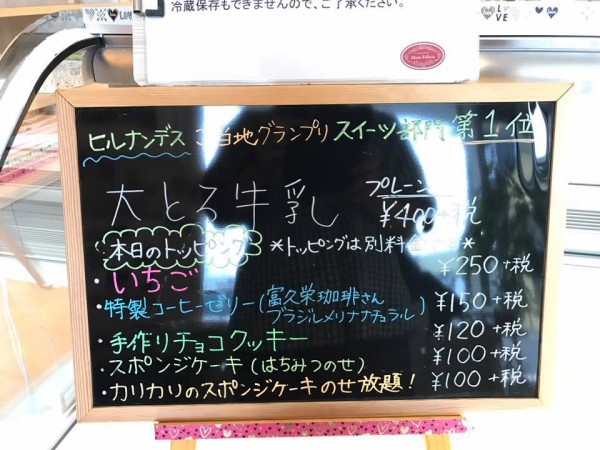 冷蔵保存もできませんので、ご了承ください。
LOVE
ヒルナンデス ご当地グランプリ スイーツ部門 第1位
大とろ牛乳 プレーン ¥400+税
本日のトッピング *トッピングは別料金です*
・いちご ¥250+税
・特製コーヒーゼリー(富久栄珈琲さん ブラジルメリナナチュラル) ¥150+税
・手作りチョコクッキー ¥120+税
・スポンジケーキ(はちみつのせ) ¥100+税
・カリカリのスポンジケーキのせ放題! ¥100+税